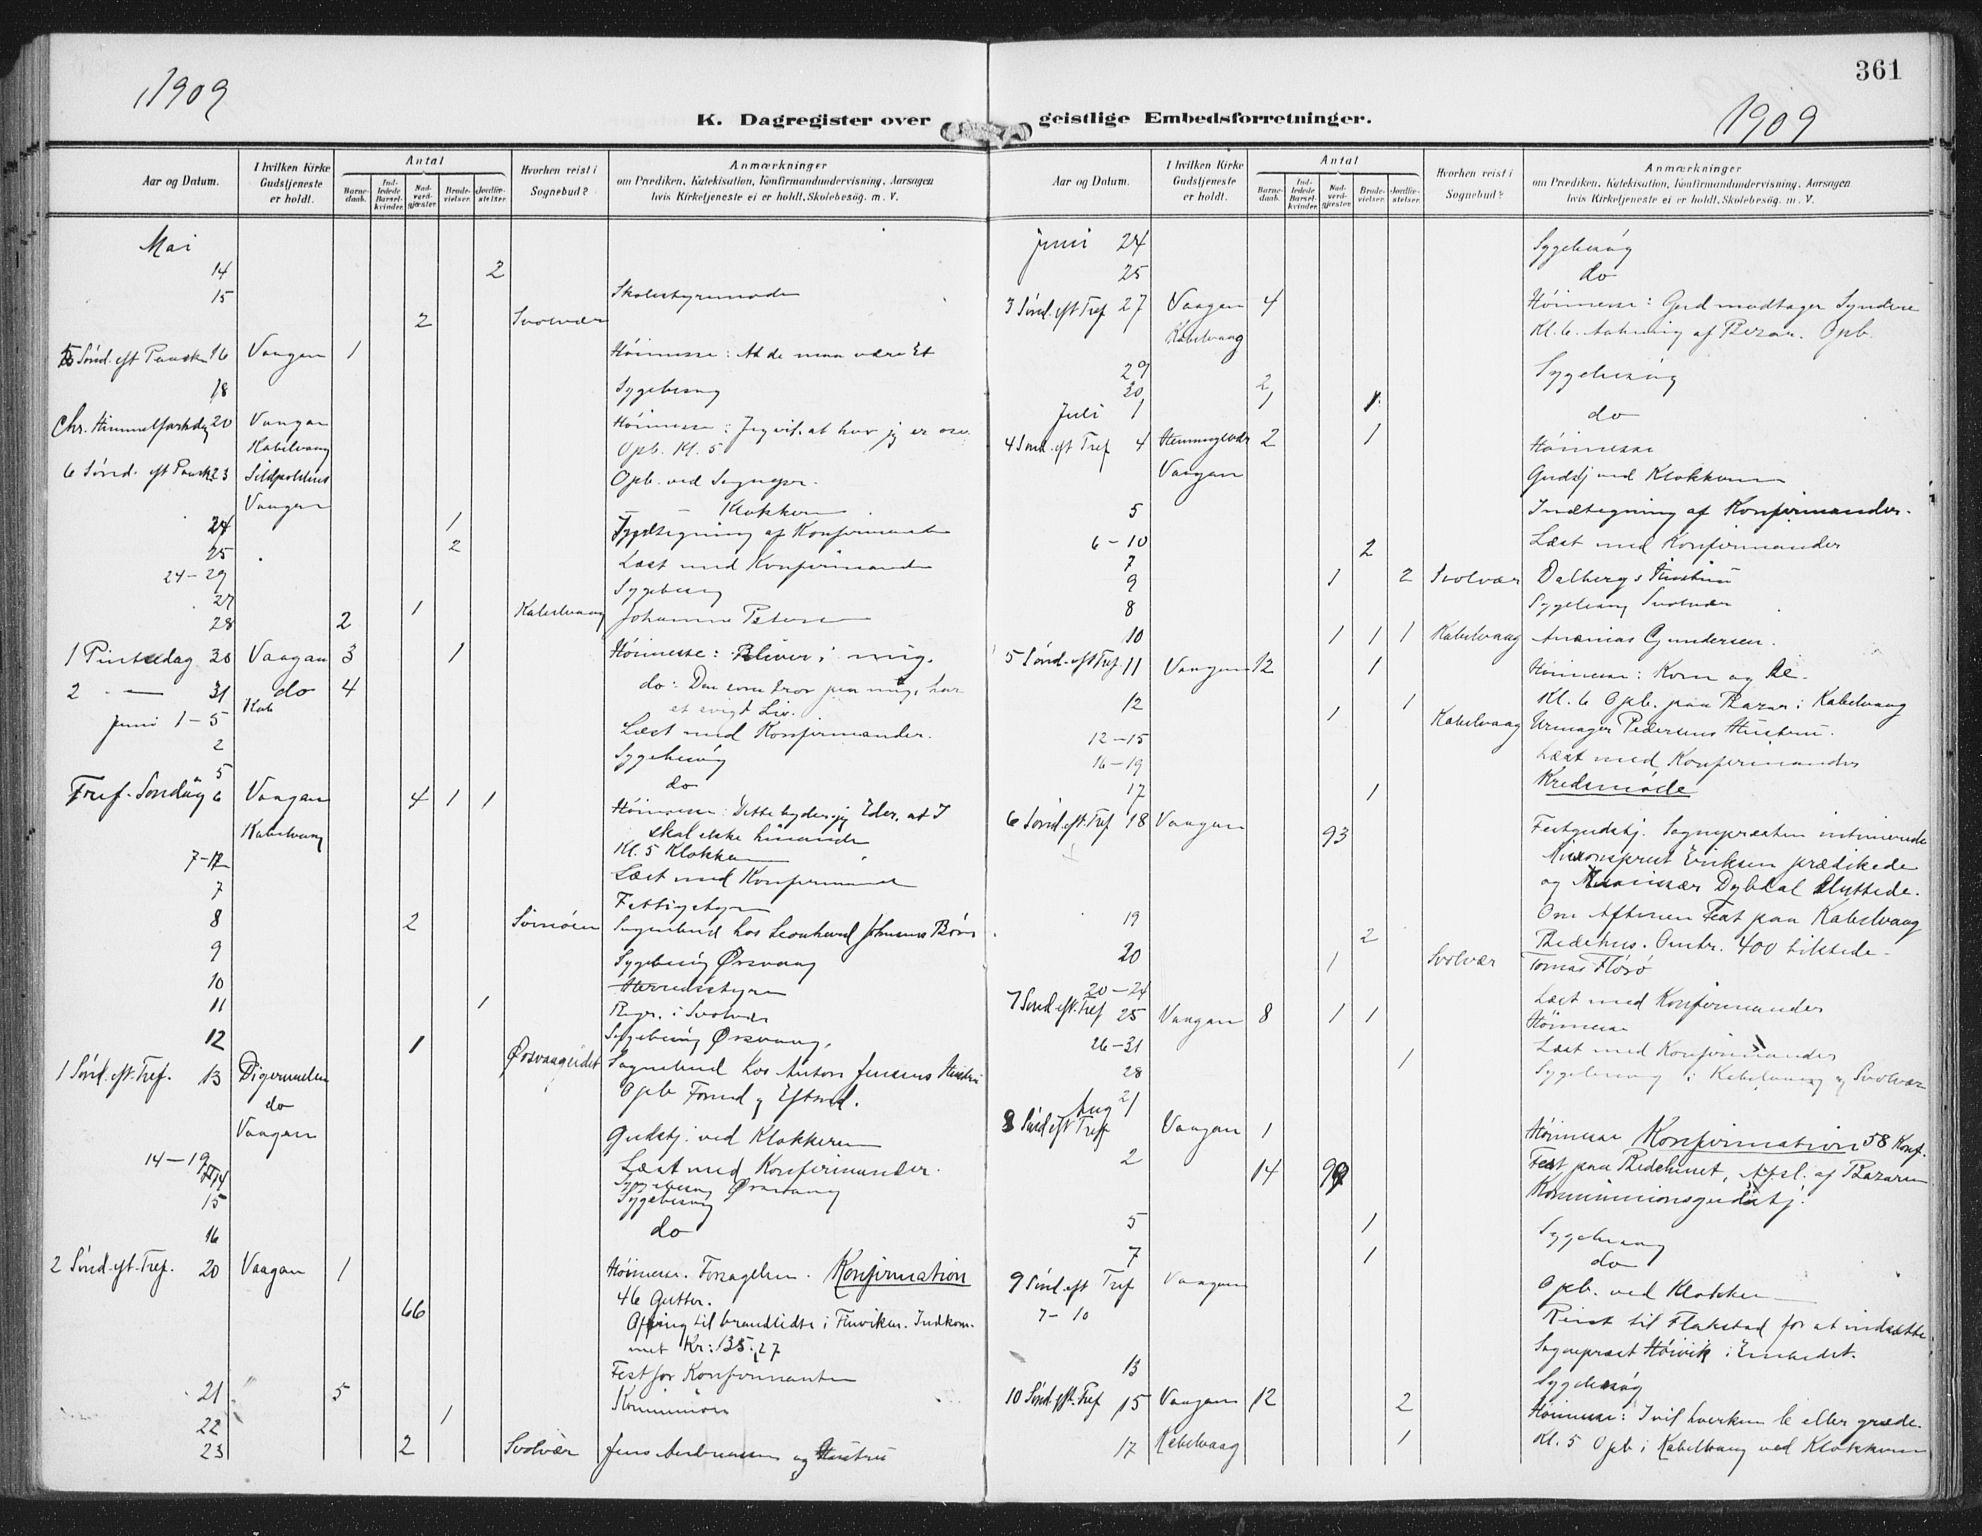 1909
K. Dagregister over
Aar og Datum.
I hvilken Kirke Gudstjeneste er holdt.
Antal
Barne-daab.
Ind-ledede Barsel-kvinder.
Nad-verd-gjæster.
Brude-vielser.
Jordfæ-stelser.
Hvorhen reist i Sognebud?
Anmærkninger
om Prædiken, Katekisation, Konfirmandundervisning, Aarsagen
hvis Kirketjeneste ei er holdt, Skolebesøg. m. V.
Mai
14 2
15 Skolestyremøde
2 Svolvær
5 Sönd. eft Paaske 16 Vaagan 1 Høimesse: At de maa være Et
18 Sygebesøg
Chr. Himmelfartsdag 20 Vaagan Høimesse: Jeg vil, at hvor jeg er osv.
Kabelvaag Opb. Kl. 5
6 Sönd. eft Paaske 23 Opb. ved Sognepr.
Vaagan — Klokkeren
24 1 Indtegning af Konfirmanter
25 2
24-29 Læst med Konfirmanter
27 1 Sygebesøg
28 2 Kabelvaag Johanna Petersen
1 Pintsedag 30 Vaagan 3 1 Høimesse: Bliver i mig.
2 — 31 do 4 do: Den som tror paa mig, har
Kab et evigt Liv.
Juni 1-5 Læst med Konfirmander.
2 Sygebesøg
5 do
Tref. Søndag 6 Vaagan 4 1 1 Høimesse: Dette byder jeg Eder, at I
Kabelvaag skal elske hinanden
Kl. 5 Klokkeren
7-12 Læst med Konfirmander
7 Fattigstyre
8 2 Sognebud hos Leonhard Johnsens Børn
9 Sygebesøg Ørsvaag
10 Herredsstyre
11 1 Begr. i Svolvær
12 1 Sygebesøg Ørsvaag.
Ørsvaageidet Sognebud hos Anton Jensens Hustru
1 Sönd. eft. Tref. 13 Digermulen Opb Formd og Eftmd.
do
Vaagan Gudstj. ved Klokkeren
14-19 Læst med Konfirmander.
14 Sygebesøg Ørsvaag
15 Sygebesøg
16 do
2 Sönd. eft. Tref. 20 Vaagan 1 Høimesse. Forsagelsen. Konfirmation
46 Gutter.
66 Ofring til brandlidte i Finviken. Indkom-
met Kr: 135.27
Fest for Konfirmanter
21 5 Kommunion
22 1
23 2 Svolvær Jens Andreassen og Hustru
361
geistlige Embedsforretninger.
1909
Aar og Datum.
I hvilken Kirke Gudstjeneste er holdt.
Antal
Barne-daab.
Ind-ledede Barsel-kvinder.
Nad-verd-gjæster.
Brude-vielser.
Jordfæ-stelser.
Hvorhen reist i Sognebud?
Anmærkninger
om Prædiken, Katekisation, Konfirmandundervisning, Aarsagen
hvis Kirketjeneste ei er holdt, Skolebesög. m. V.
Juni 24 Sygebesøg
25 do
3 Sönd. eft Tref 27 Vaagan 4 Høimesse: Gud modtager Syndere
Kabelvaag Kl. 6. Aabning af Bazar. Opb.
29 Sygebesøg
30 2
Juli 1 1 1 do
4 Sönd. eft Tref 4 Henningsvær 2 1 Høimesse
Vaagan Gudstj ved Klokkeren
5 Indtegning af Konfirmander.
6-10 Læst med Konfirmander
7 2
9 1 2 Svolvær Dalbergs Hustru
8 Sygebesøg Svolvær
10 1 1 1 Kabelvaag Ananias Gundersen.
5 Sönd. eft Tref. 11 Vaagan 12 1 Høimesse: Kom og se.
12 1 Kl. 6 Opb. paa Bazar i Kabelvaag
1 Kabelvaag Urmager Pedersens Hustru.
12-15
16-19 Læst med Konfirmander
17 1 Kredsmøde
6 Sönd. eft. Tref 18 Vaagan 93 Festgudstj. Sognepræsten intimerede
Missonsprest Eriksen prædikede
og Missionær Dybdal sluttede.
19 Om Aftenen Fest paa Kabelvaag
2 Bedehus. Omtr. 400 tilstede.
20 1 Svolvær Tomas Florø
20-24 Læst med Konfirmander
7 Sönd. eft. Tref 25 Vaagan 8 1 1 Høimesse
26-31 Læst med Konfirmander
28 1 Sygebesøg i Kabelvaag og Svolvær
Aug 1
8 Sönd eft Tref Vaagan 1 Høimesse Konfirmation 58 Konf.
2 Fest paa Bedehuset, Afsl. af Bazaren
14 Kommunionsgudstj.
5 1 Sygebesøg
7 1 do
9 Sönd. eft Tref Vaagan Opb. ved Klokkeren
7-10 Reist til Flakstad for at indsætte
Sognepræst Høivik i Embedet.
13 Sygebesøg
10 Sönd. eft. Tref 15 Vaagan 12 2 Høimesse: I vil hverken le eller græde.
17 Kabelvaag 1 Kl. 5 Opb i Kabelvaag ved Klokkeren